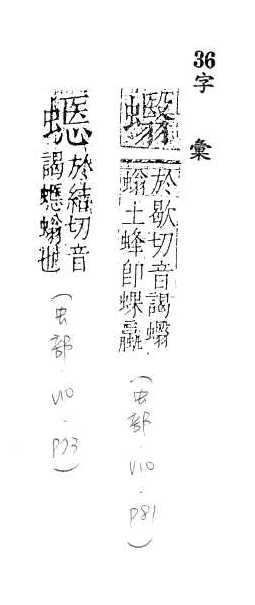 36字彙
蠮
於歇切音謁蠮
螉土蜂即蜾蠃
(虫部.V10.P81)
於結切音
謁螉也
(虫部.V10.P73)